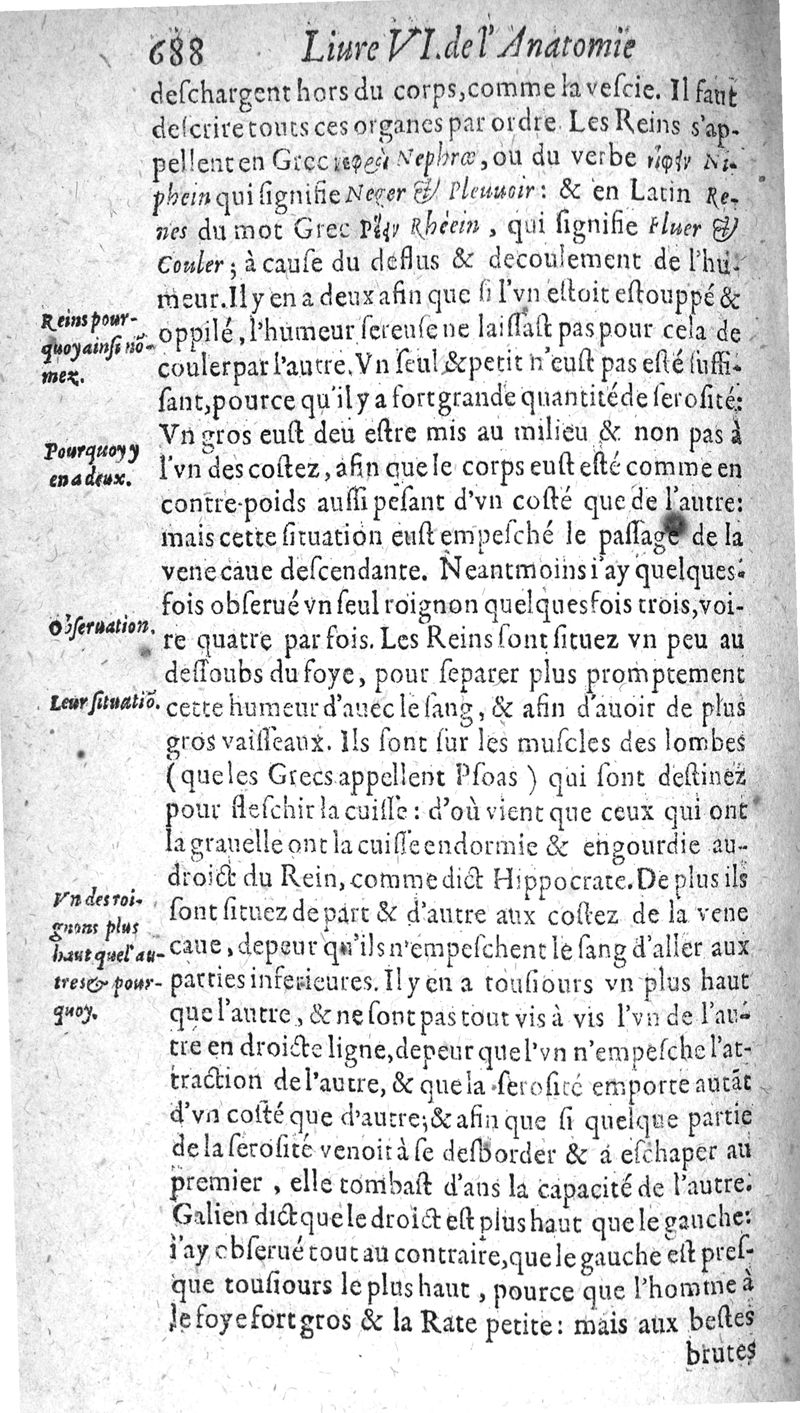 688 Liure VI. de l'Anatomie
deſchargent hors du corps, comme la veſcie. Il faut
deſcrire touts ces organes par ordre. Les Reins s'ap-
pellent en Grec Nephræ, ou du verbe νίφειν Ni-
phein qui ſignifie Neger & Pleuuoir: & en Latin Re-
nes du mot Grec Ῥέειν Rhéein, qui ſignifie Fluer &
Couler; à cauſe du deflus & decoulement de l'hu-
meur. Il y en a deux afin que ſi l'vn eſtoit eſtouppé &
Reins pour-
quoy ainſi nõ-
mez.
oppilé, l'humeur ſereuſe ne laiſſaſt pas pour cela de
couler par l'autre. Vn ſeul & petit n'euſt pas eſté ſuffi-
ſant, pource qu'il y a fort grande quantité de ſeroſité:
Vn gros euſt deu eſtre mis au milieu & non pas à
Pourquoy y
en a deux.
l'vn des coſtez, afin que le corps euſt eſté comme en
contre-poids auſſi peſant d'vn coſté que de l'autre:
mais cette ſituation euſt empeſché le paſſage de la
vene caue deſcendante. Neantmoins i'ay quelques-
fois obſerué vn ſeul roignon quelquesfois trois, voi-
Obſeruation.
re quatre par fois. Les Reins ſont ſituez vn peu au
deſſoubs du foye, pour ſeparer plus promptement
Leur ſituatiõ.
cette humeur d'auec le ſang, & afin d'auoir de plus
gros vaiſſeaux. Ils ſont ſur les muſcles des lombes
(que les Grecs appellent Pſoas) qui ſont deſtinez
pour fleſchir la cuiſſe: d'où vient que ceux qui ont
la grauelle ont la cuiſſe endormie & engourdie au-
droict du Rein, comme dict Hippocrate. De plus ils
Vn des roi-
gnons plus
haut que l'au-
tres & pour-
quoy.
ſont ſituez de part & d'autre aux coſtez de la vene
caue, depeur qu'ils n'empeſchent le ſang d'aller aux
parties inferieures. Il y en a touſiours vn plus haut
que l'autre, & ne ſont pas tout vis à vis l'vn de l'au-
tre en droicte ligne, depeur que l'vn n'empeſche l'at-
traction de l'autre, & que la ſeroſité emporte autãt
d'vn coſté que d'autre; & afin que ſi quelque partie
de la ſeroſité venoit à ſe desborder & à eſchaper au
premier, elle tombaſt d'ans la capacité de l'autre.
Galien dict que le droict eſt plus haut que le gauche:
i'ay obſerué tout au contraire, que le gauche eſt preſ-
que touſiours le plus haut, pource que l'homme à
le foye fort gros & la Rate petite: mais aux beſtes
brutes